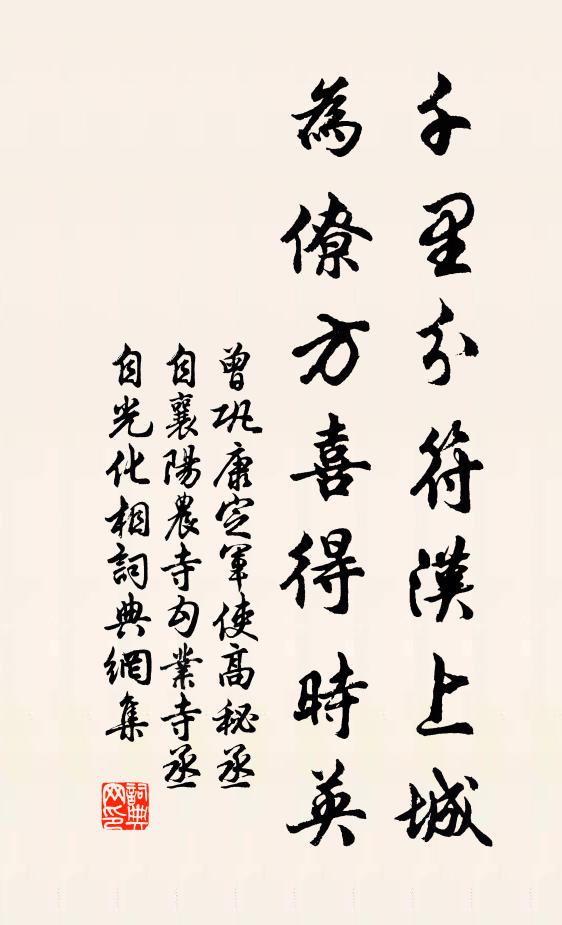 千里分符漢上城
為僚方喜得時英
曾巩康定軍使高秘丞
自襄陽農寺勾業寺丞
自光化相詞典網集
詞典网印